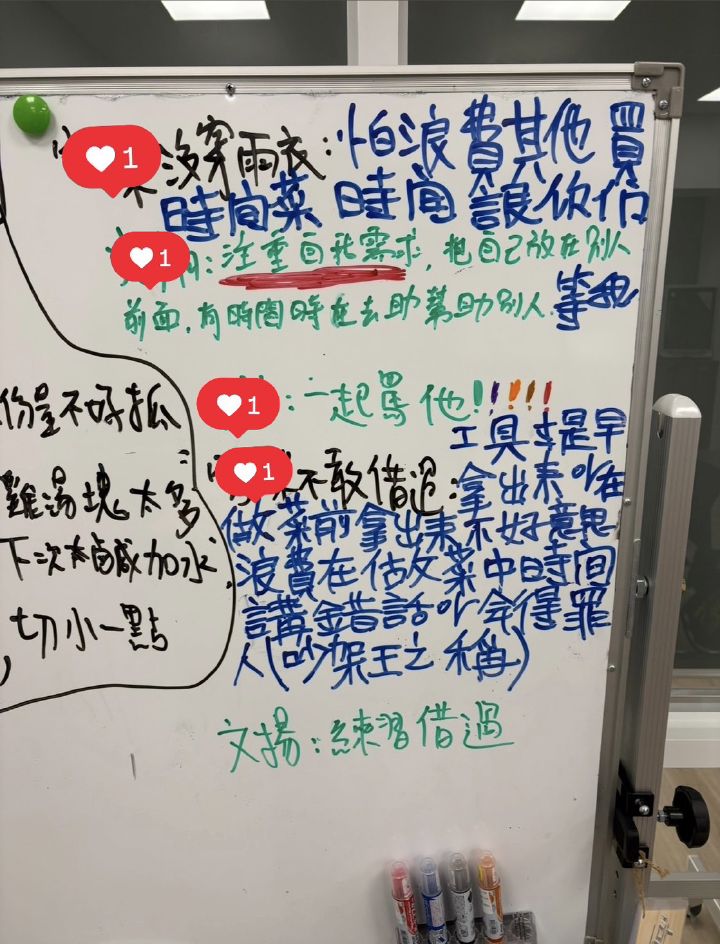 1
沒穿雨衣:怕浪費其他買
時間菜 時間 讓你們
1
:注重自我需求,把自己放在別人
前面,有時間時在去助幫助別人.等我
份量不好抓
1
:一起罵他!!!!!
工具才是早
1
不敢借過:拿出來
雞湯塊太多
做菜前拿出來不好意思
下次太鹹加水
浪費在估父菜中時間
講錯話 會得罪
切小一點
人(吵架王之稱)
文揚:練習借過